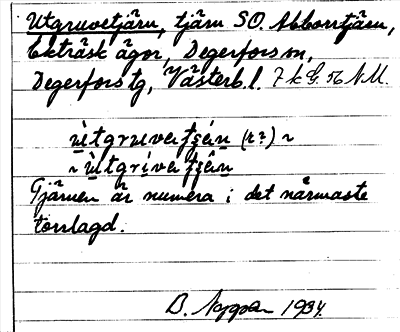 Utgruvetjärn, tjärn SO. Abborrtjärn,
Ekträsk ägor, Degerfors sn,
Degerfors tg, Västerb. l. 7 k G. n N M.
ùtgruvertʃén (r?) ~
~ ùtgrívertʃén
Tjärnen är numera i det närmaste
torrlagd.
B. 1934.